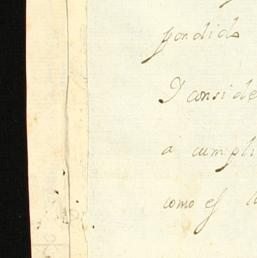 pondido
I conside
a cumpli
como es